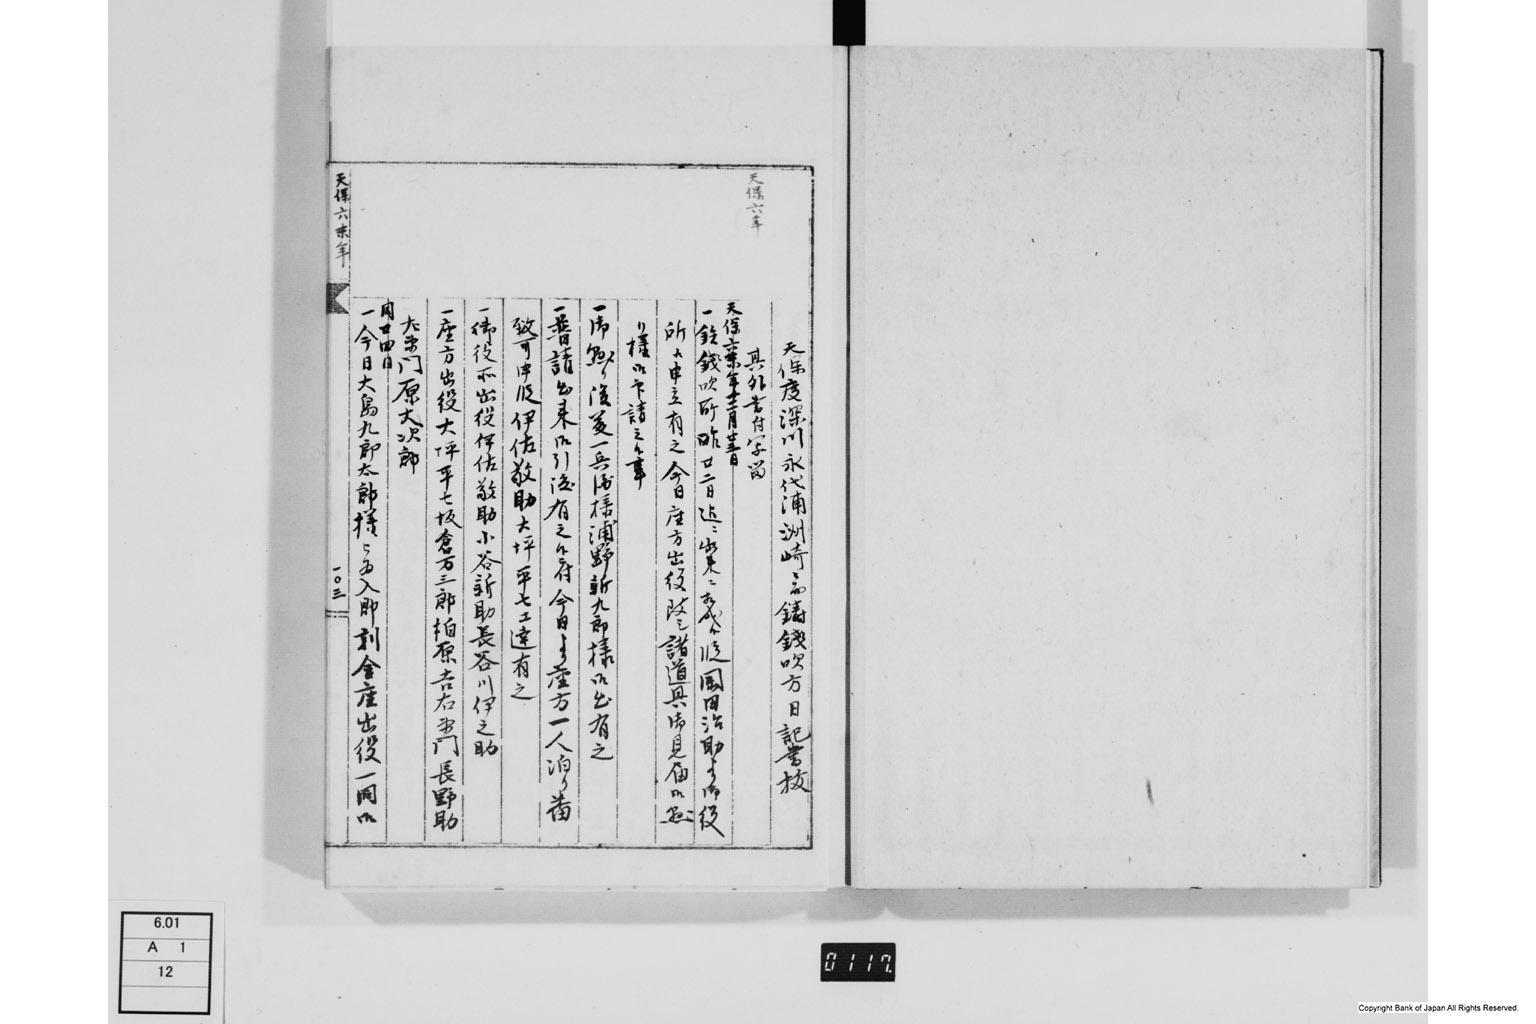 天保六年
天保度深川永代浦洲崎ニ而鋳銭吹方日記書抜
其外書付写留
天保六未年十二月廿三日
一鉄銭吹所昨廿二日迄ニ出来ニ相成候段岡田治助より御役
所江申立有之今日座方出役改之諸道具御見届御懸
り様御下請之候事
一御懸り後藤一兵衛様浦野新九郎様御出有之
一普請出来御引渡有之候付今日より座方一人泊り番
致可申段伊佐敬助大坪平七江達有之
一御役所出役伊佐敬助小谷新助長谷川伊之助
一座方出役大坪平七坂倉万三郎柏原吉右衛門長野助
左衛門原丈次郎
同廿四日
一今日大島九郎太郎様御立入即刻金座出役一同御
天保六未年
一〇三
6.01
A 1
12
0117.
Copyright Bank of Japan All Rights Reserved.